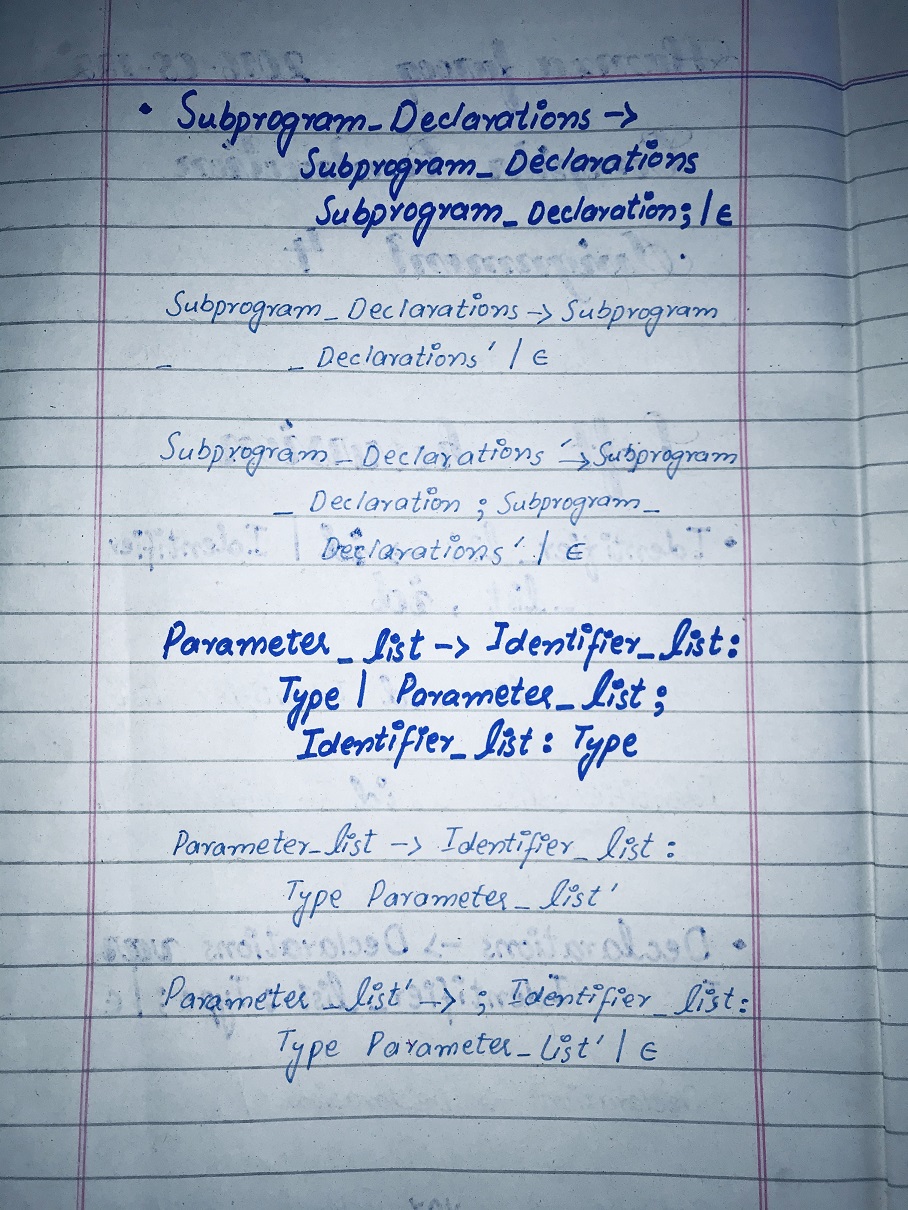 • Subprogram_Declarations →
Subprogram_Declarations
Subprogram_Declaration; / ε
Subprogram_Declarations → Subprogram
_ _ Declarations' / ε
Subprogram_Declarations' → Subprogram
_ Declaration ; Subprogram_
Declarations' / ε
Parameter_list → Identifier_list:
Type | Parameter_list ;
Identifier_list : Type
Parameter_list → Identifier_list :
Type Parameter_list'
Parameter_list' → ; Identifier_list:
Type Parameter_list' | ε